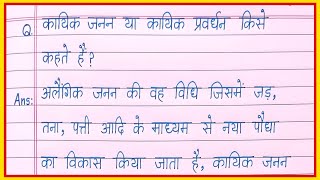 Q कायिक जनन या कायिक प्रवर्धन किसे
कहते हैं?
Ans: अलैंगिक जनन की वह विधि जिसमें जड़,
तना, पत्ती आदि के माध्यम से नया पौधा
का विकास किया जाता है, कायिक जनन